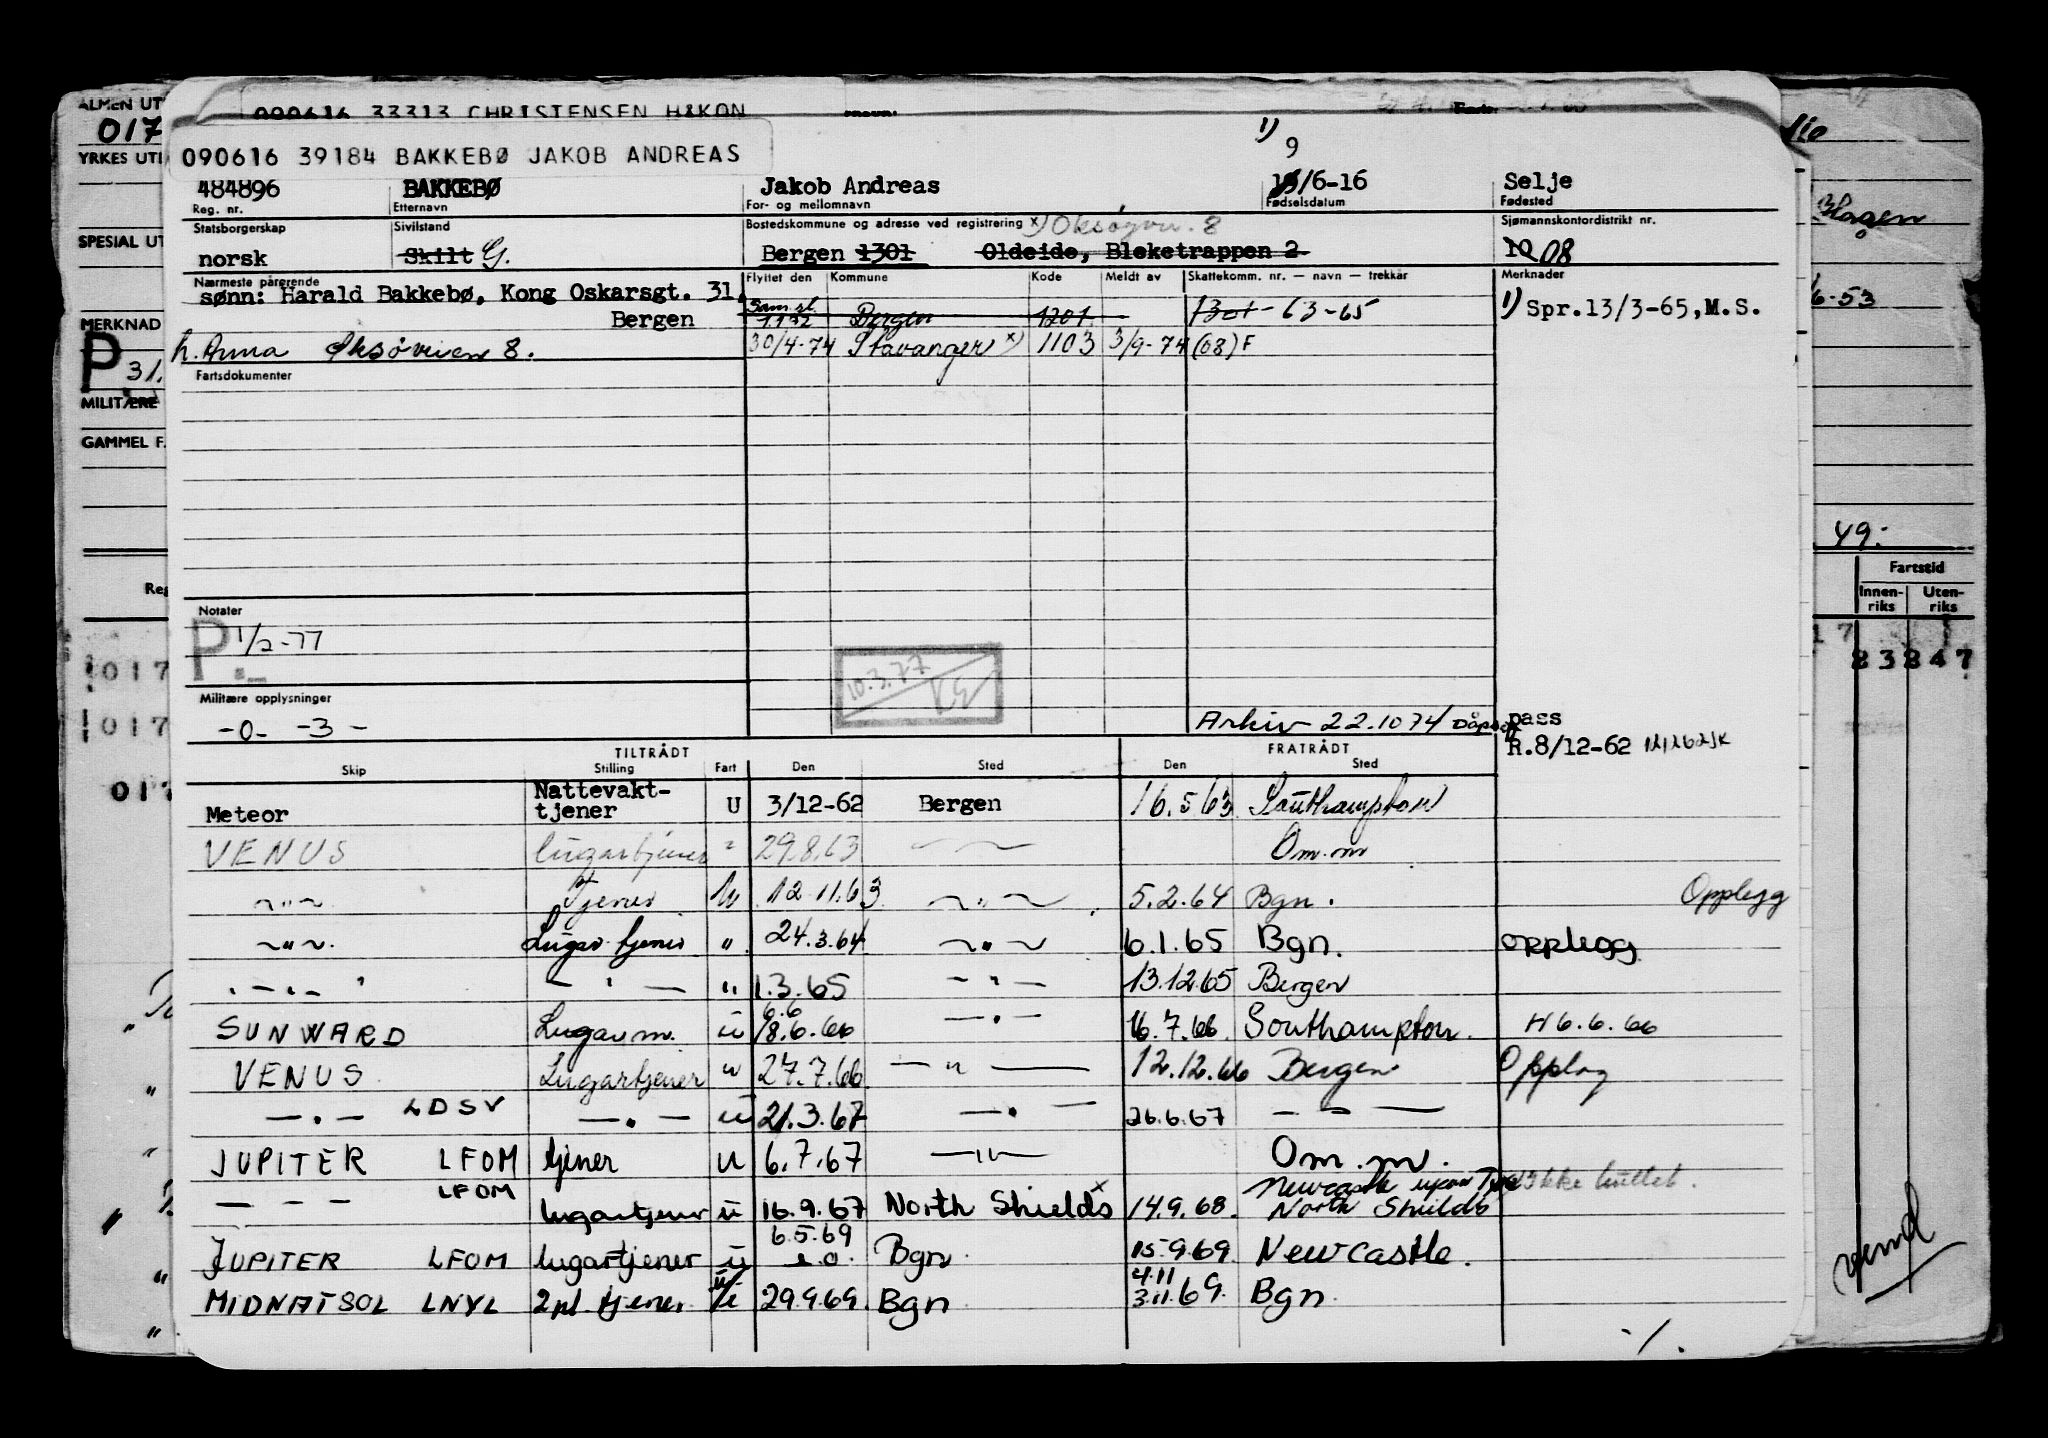 ALMEN UT
090616 33313 CHRISTENSEN HAKON
017
YRKES UTI
090616 39184 BAKKEBØ JAKOB ANDREAS
1) 9
484896 BAKKEBØ Jakob Andreas 15/6-16 Selje
Reg. nr. Etternavn For- og mellomnavn Fødselsdatum Fødested
Statsborgerskap Sivilstand Bostedskommune og adresse ved registrering x) Oksøyvn. 8 Sjømannskontordistrikt nr.
SPESIAL UT
norsk Skilt G. Bergen 1301 Oldeide, Bleketrappen 2 10 08
Nærmeste pårørende Flyttet den Kommune Kode Meldt av Skattekomm. nr. — navn — trekkår Merknader
sønn: Harald Bakkebø, Kong Oskarsgt. 31, Sam.sl.
6-53
MERKNAD
Bergen 1.1.72 Bergen 1201 1301 - 63-65 1) Spr.13/3-65, M.S.
h. Anna Oksøveien 8. 30/4-74 Stavanger x) 1103 3/9-74 (08) F
P 31.
Fartsdokumenter
MILITÆRE
GAMMEL F.
49:
Fartstid
Innen-riks Uten-riks
Reg
Notater
P. 1/2-77
10.3.77
17
23 847
017
Militære opplysninger
-0- -3-
017
Arkiv 22.10 74/ Dåpsatt
pass
R.8/12-62
TILTRÅDT FRATRÅDT
Skip Stilling Fart Den Sted Den Sted
017
Meteor Nattevakt-tjener U 3/12-62 Bergen 16.5.63 Southampton
VENUS lugartjener " 29.8.63 — Om.m
— " — Tjener U 12.11.63 — " — 5.2.64 Bgn. Opplegg
— " — Lugar tjener " 24.3.64 — " — 6.1.65 Bgn. opplegg
— " — — " — " 1.3.65 — " — 13.12.65 Bergen
6.6
SUNWARD Lugarm. u 18.6.66 — " — 16.7.66 Southampton. H 6.6.66
VENUS Lugartjener " 27.7.66 — " — 12.12.66 Bergen Opplag
— " — LDSV — " — u 21.3.67 — " — 26.6.67 — " —
JUPITER LFOM tjener U 6.7.67 — " — Om.m.
Newcastle upon Tyne Ikke
— — — LFOM lugartjener u 16.9.67 North Shields x 14.9.68. North Shields
6.5.69
JUPITER LFOM lugartjener u e.o. Bgn 15.9.69. Newcastle.
4.11
MIDNATSOL LNYL 2pl tjener U/i 29.9.69. Bgn 3.11.69. Bgn
vend
-/.